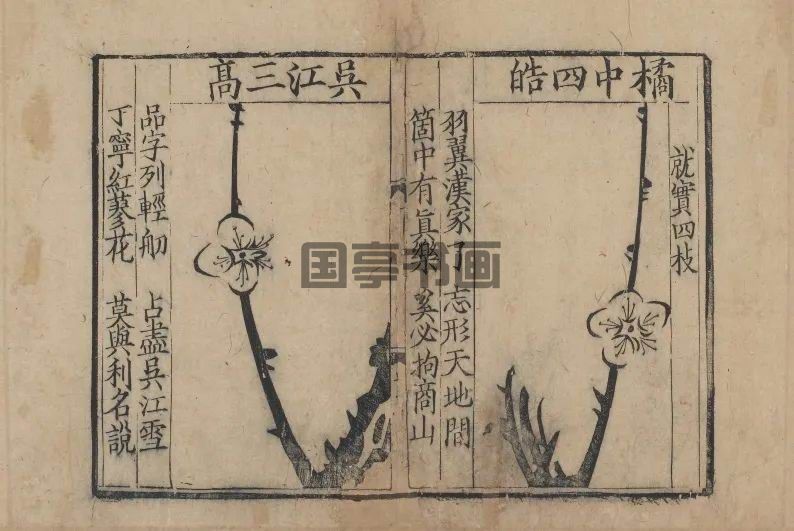 就實四枝
橘中四皓
羽翼漢家了 忘形天地間
箇中有眞樂 奚必拘商山
吳江三高
品字列輕舠 占盡吳江雪
丁寧紅蓼花 莫與利名說
国亭书画